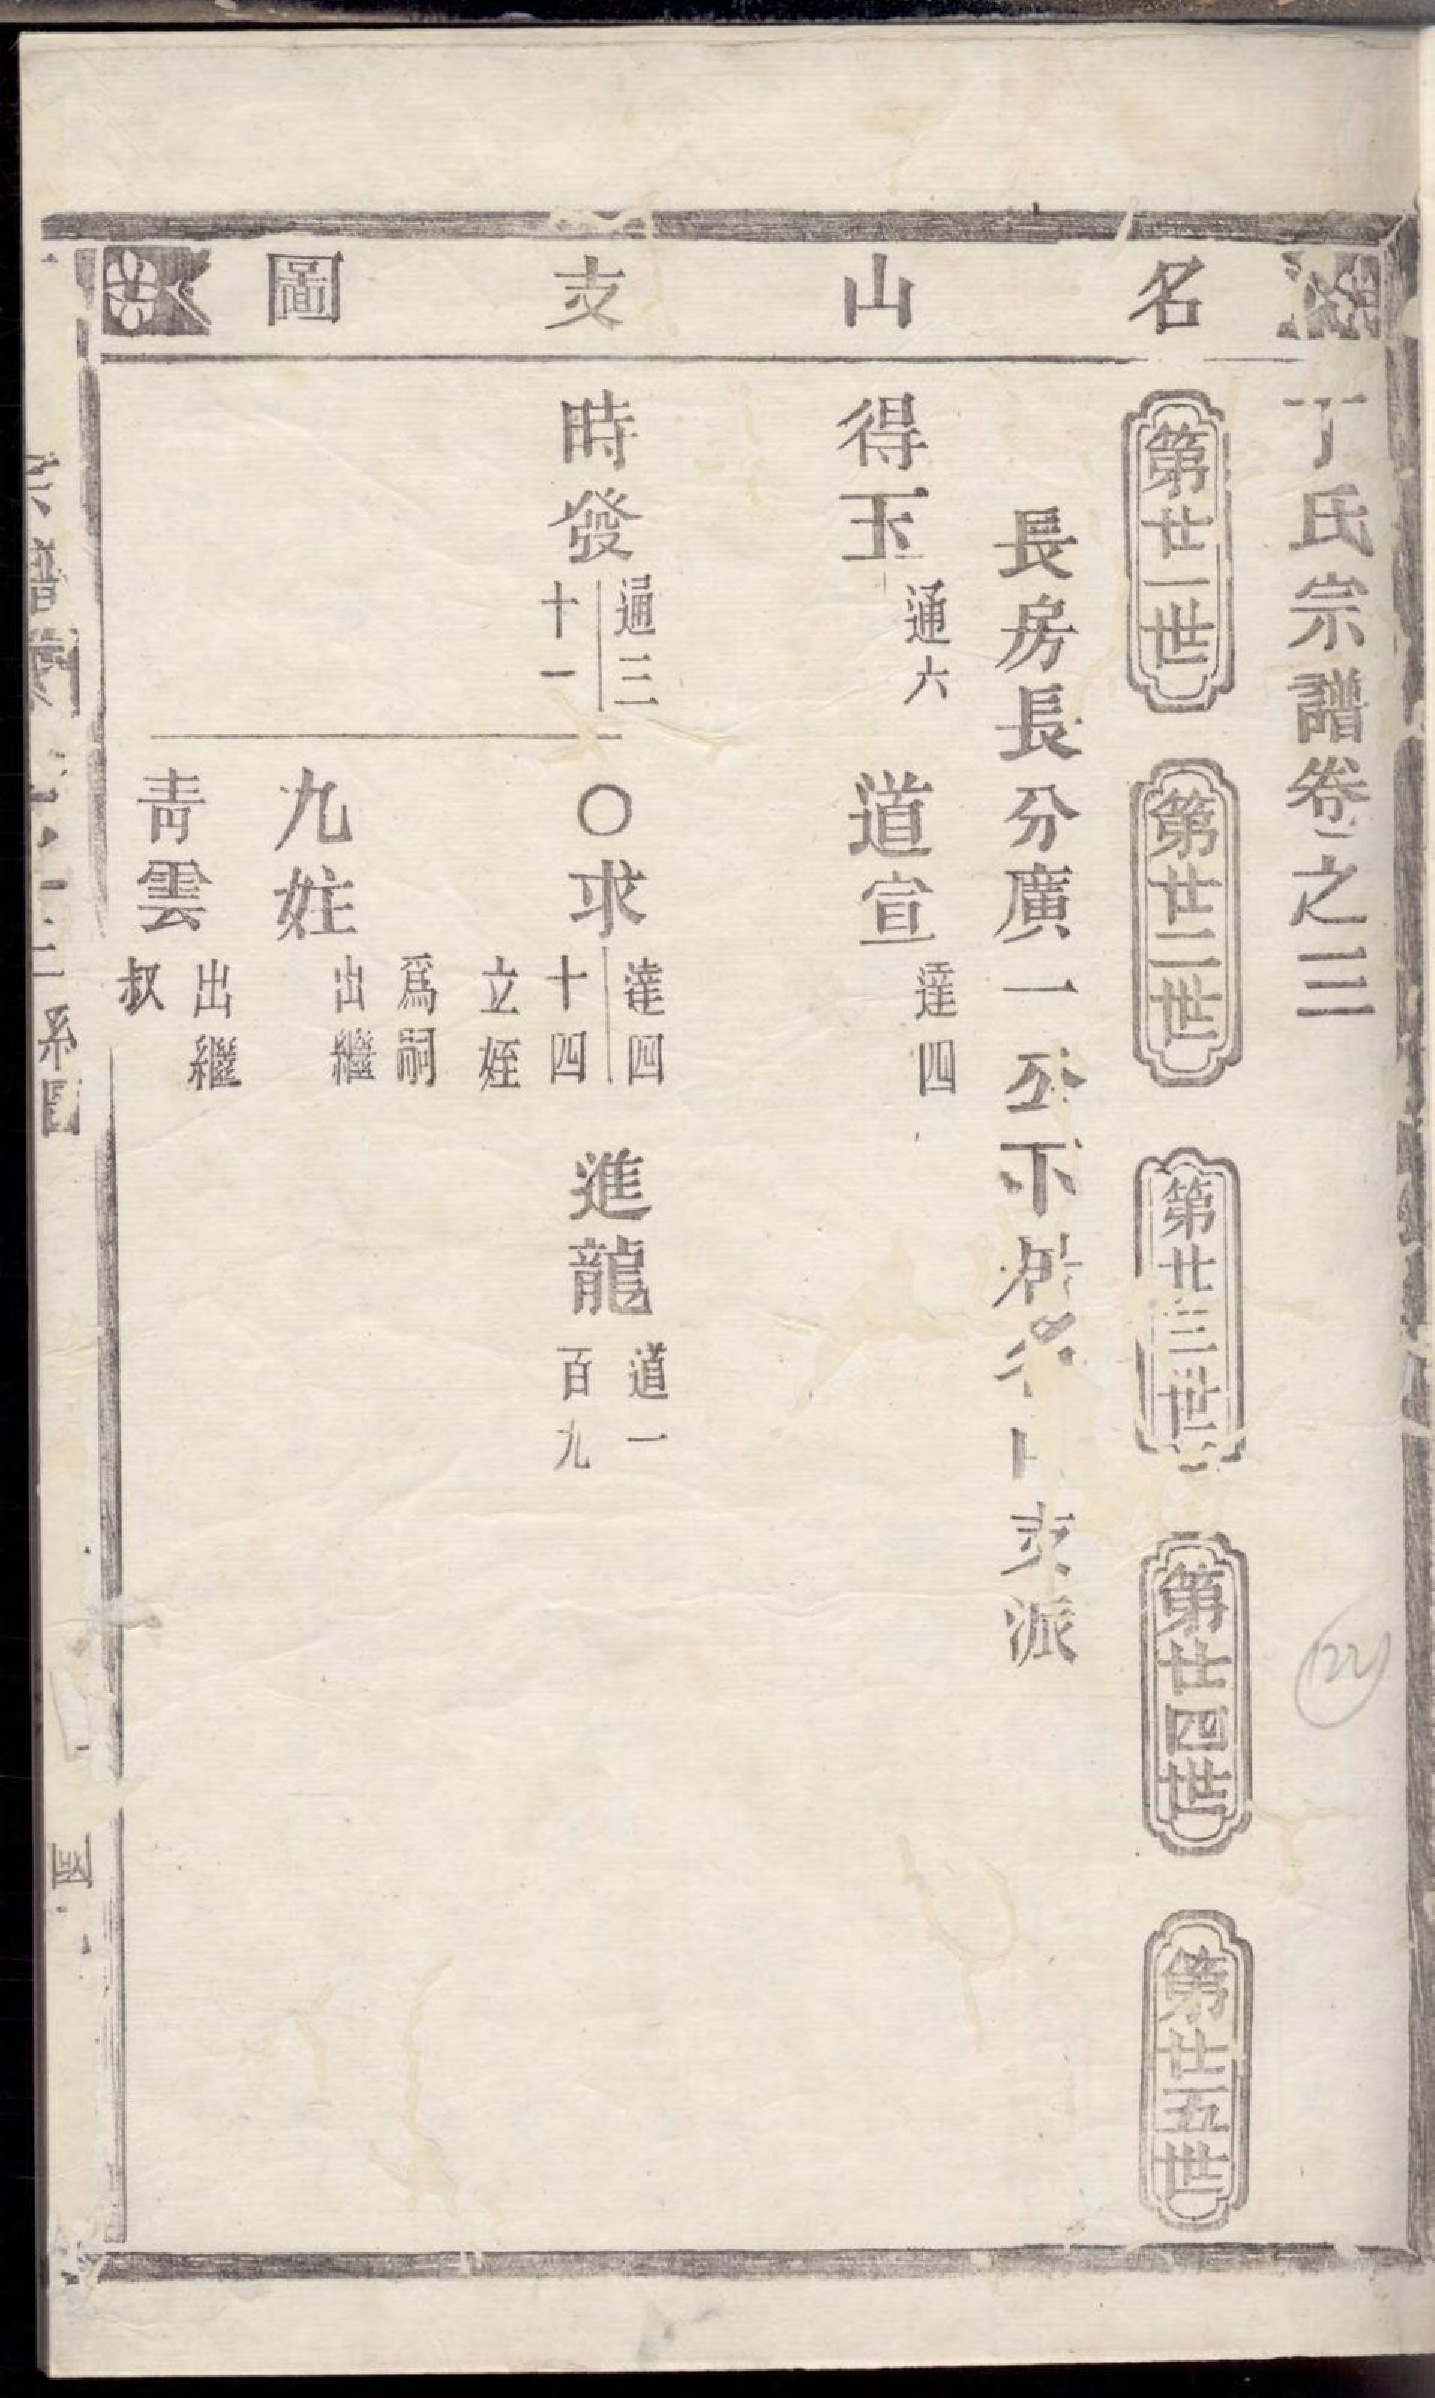 名山支圖
丁氏宗譜卷之三
第廿一世
第廿二世
第廿三世
第廿四世
第廿五世
長房長分廣一公下居名山支派
得玉 通六
道宣 達四
時發 通三十一
○求 達四十四 立姪爲祠
進龍 道一百九
九姓 出繼
青雲 出繼叔
宗譜 系圖